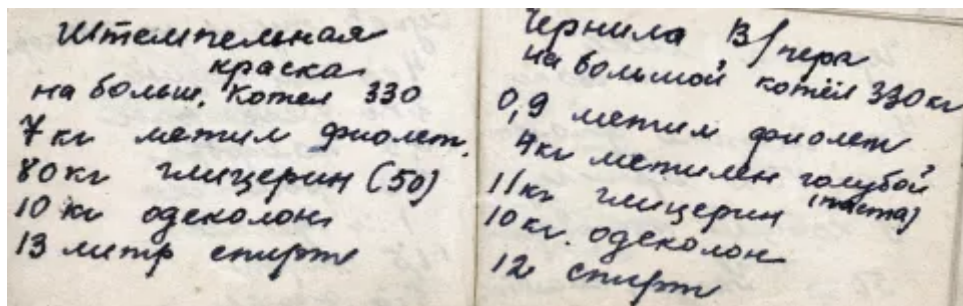 Штемпельная
краска
на больш. котел 330
7 кг метил фиолет.
80 кг глицерин (50)
10 кг одеколон
13 литр спирт
Чернила В/пера
на большой котёл 330 кг
0,9 метил фиолет
4 кг метилен голубой
(паста)
11 кг глицерин
10 кг. одеколон
12 спирт